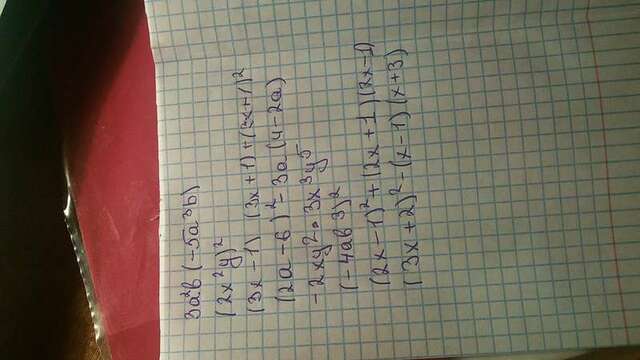 3a²b (-5a³b)
(2x²y)²
(3x-1) (3x+1)+(3x+1)²
(2a-6)²-3a(4-2a)
-2xy²•3x³y⁵
(-4ab³)²
(2x-1)²+(2x+1)(2x-1)
(3x+2)²-(x-1)(x+3)